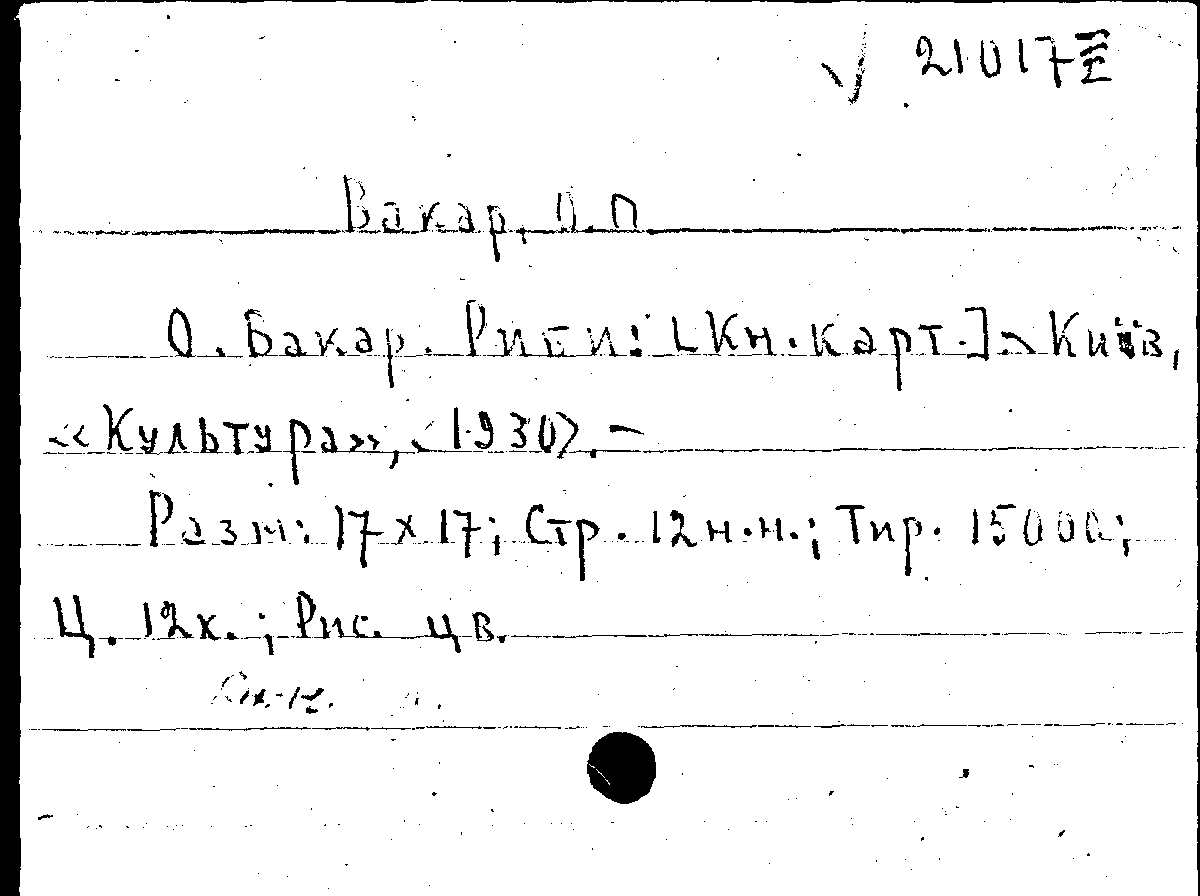 √ 21017 III
Бакар, О.П.
О. Бакар. Риби: [Кн. карт.] – Київ,
«Культура», <1930>. –
Разм: 17 x 17; Стр. 12 н.н.; Тир. 15000;
Ц. 12к.; Рис. цв.